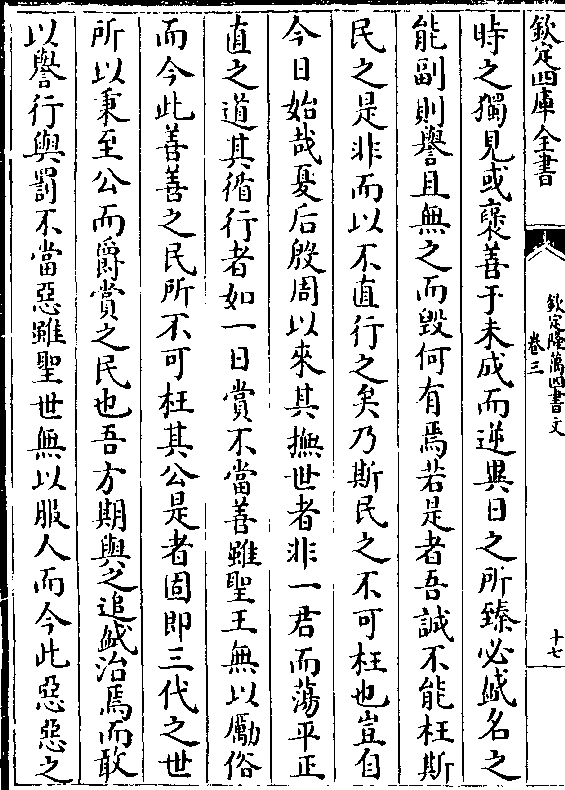 欽定四庫全書
欽定隆萬四書文
卷三
十七
時之獨見或褒善于未成而逆異日之所臻必誠名之
能副則譽且無之而毀何有焉若是者吾誠不能枉斯
民之是非而以不直行之矣乃斯民之不可枉也豈自
今日始哉夏后殷周以來其撫世者非一君而蕩平正
直之道其循行者如一日賞不當善雖聖王無以勵俗
而今此善善之民所不可枉其公是者固即三代之世
所以秉至公而爵賞之民也吾方期與之追誠治焉而敢
以譽行與罰不當惡雖聖世無以服人而今此惡惡之